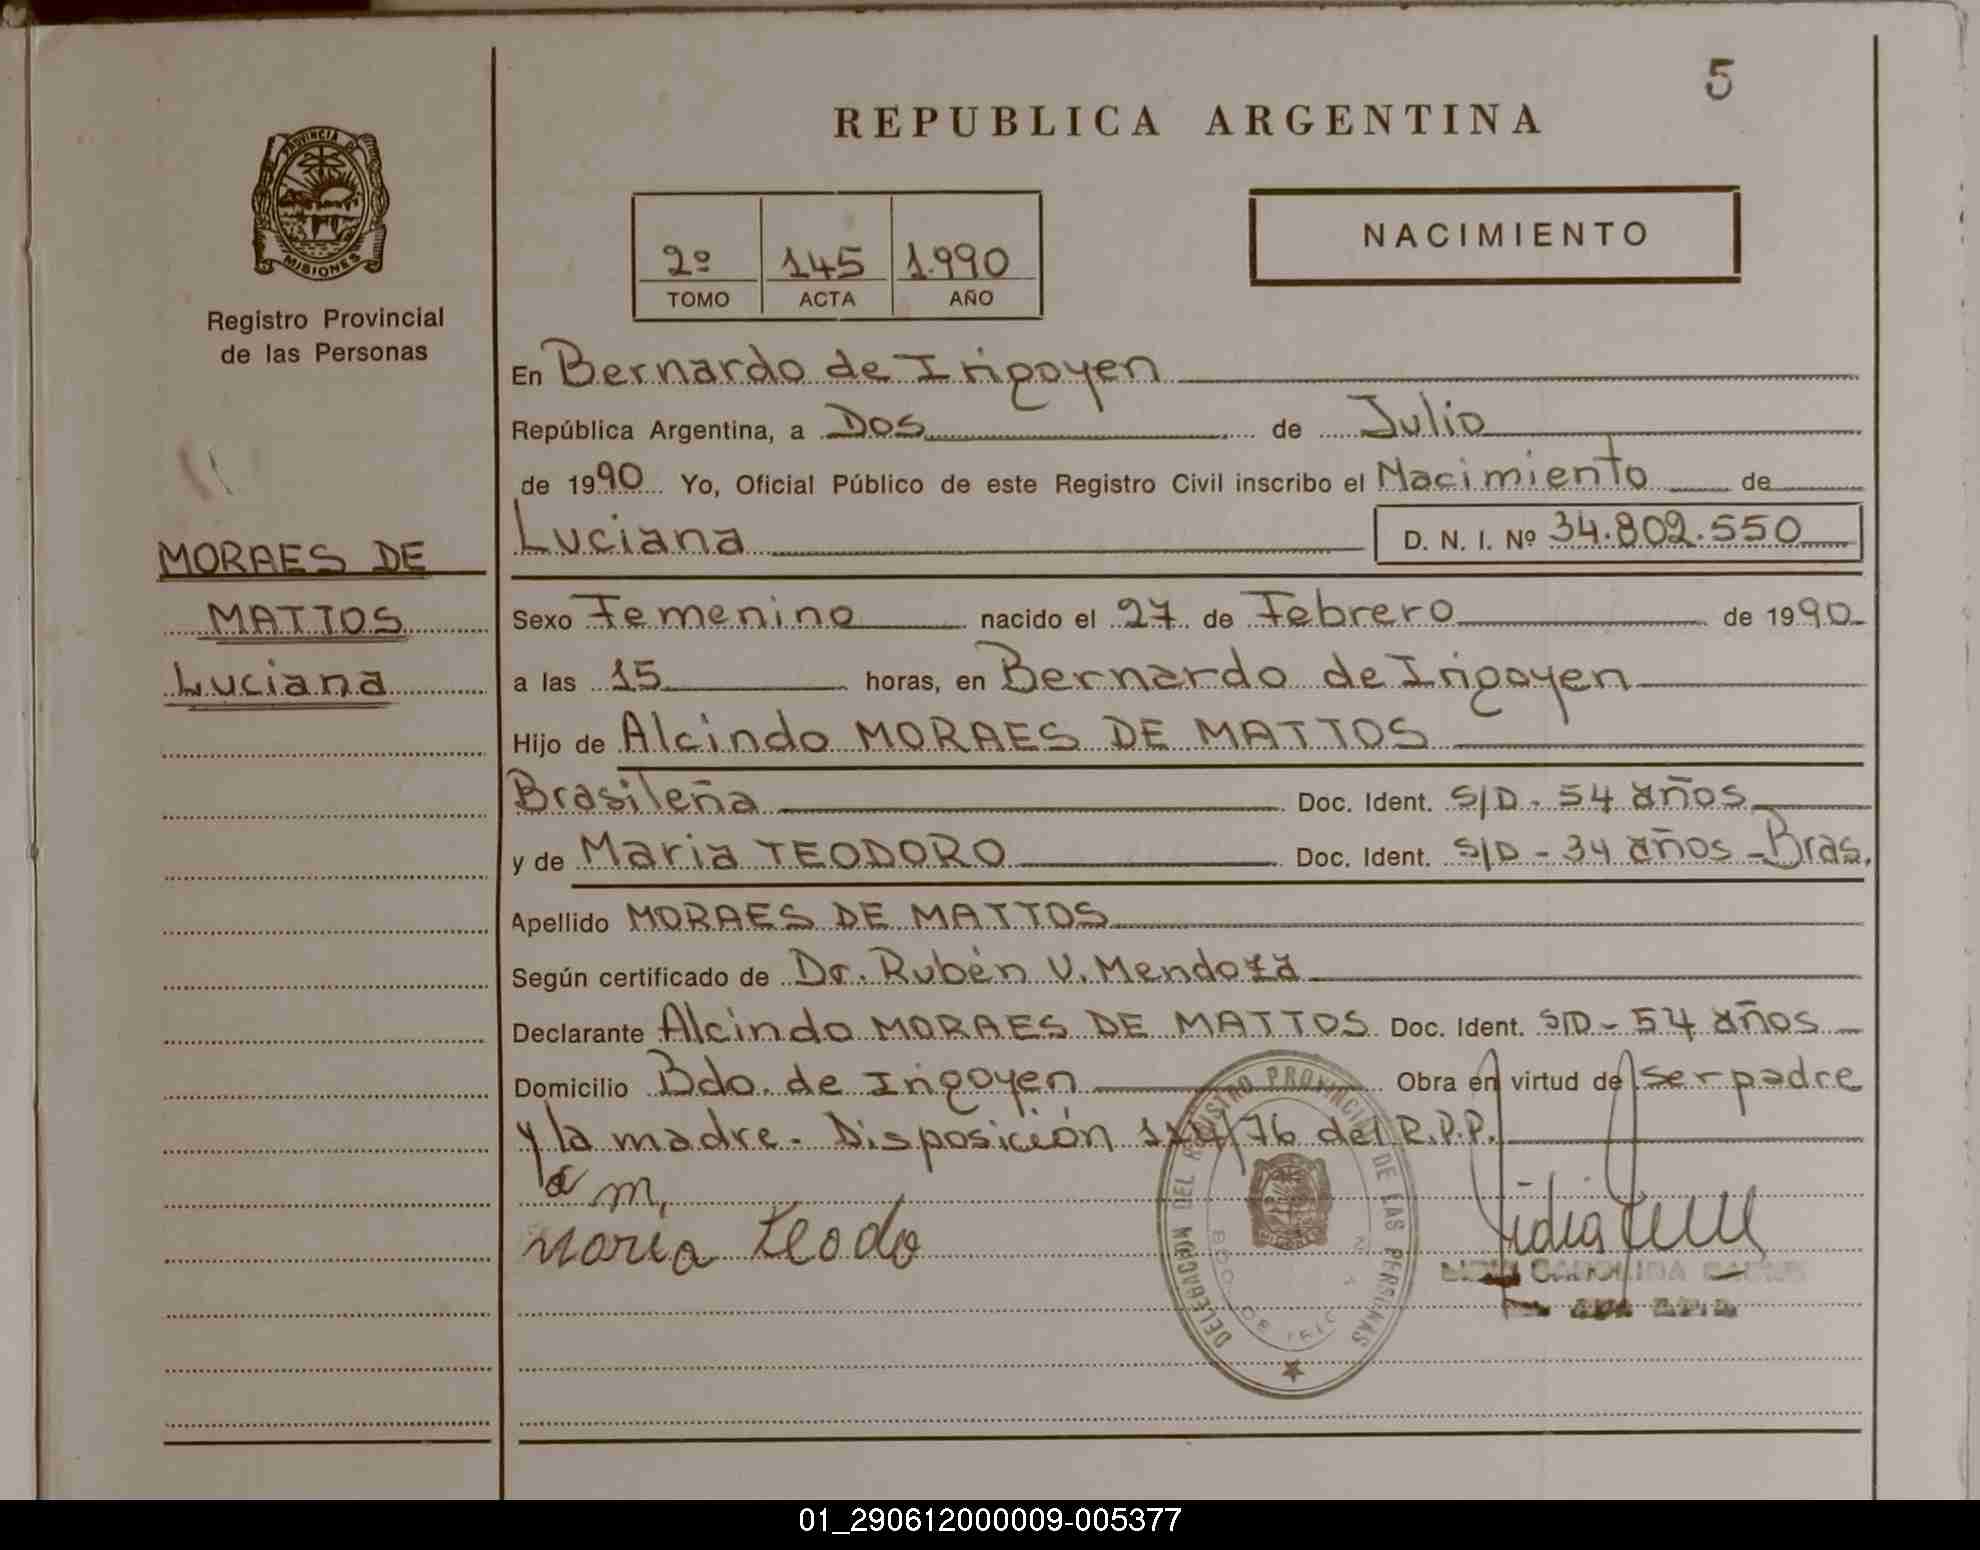 5
REPUBLICA ARGENTINA
PROVINCIA DE
MISIONES
Registro Provincial
de las Personas
2º 145 1.990
TOMO ACTA AÑO
NACIMIENTO
MORAES DE
MATTOS
Luciana
En Bernardo de Irigoyen
República Argentina, a Dos de Julio
de 1990 Yo, Oficial Público de este Registro Civil inscribo el Nacimiento de
Luciana D. N. I. Nº 34.802.550
Sexo Femenino nacido el 27 de Febrero de 1990
a las 15 horas, en Bernardo de Irigoyen
Hijo de Alcindo MORAES DE MATTOS
Brasileña Doc. Ident. S/D - 54 años
y de Maria TEODORO Doc. Ident. S/D - 34 años - Bras.
Apellido MORAES DE MATTOS
Según certificado de Dr. Rubén V. Mendoza
Declarante Alcindo MORAES DE MATTOS Doc. Ident. S/D - 54 años
Domicilio Bdo. de Irigoyen Obra en virtud de ser padre
y la madre. Disposición /76 del R.P.P.
a m,
maria teodo
DELEGACION DEL REGISTRO PROVINCIAL DE LAS PERSONAS
BDO. DE
CAROLINA
01_290612000009-005377